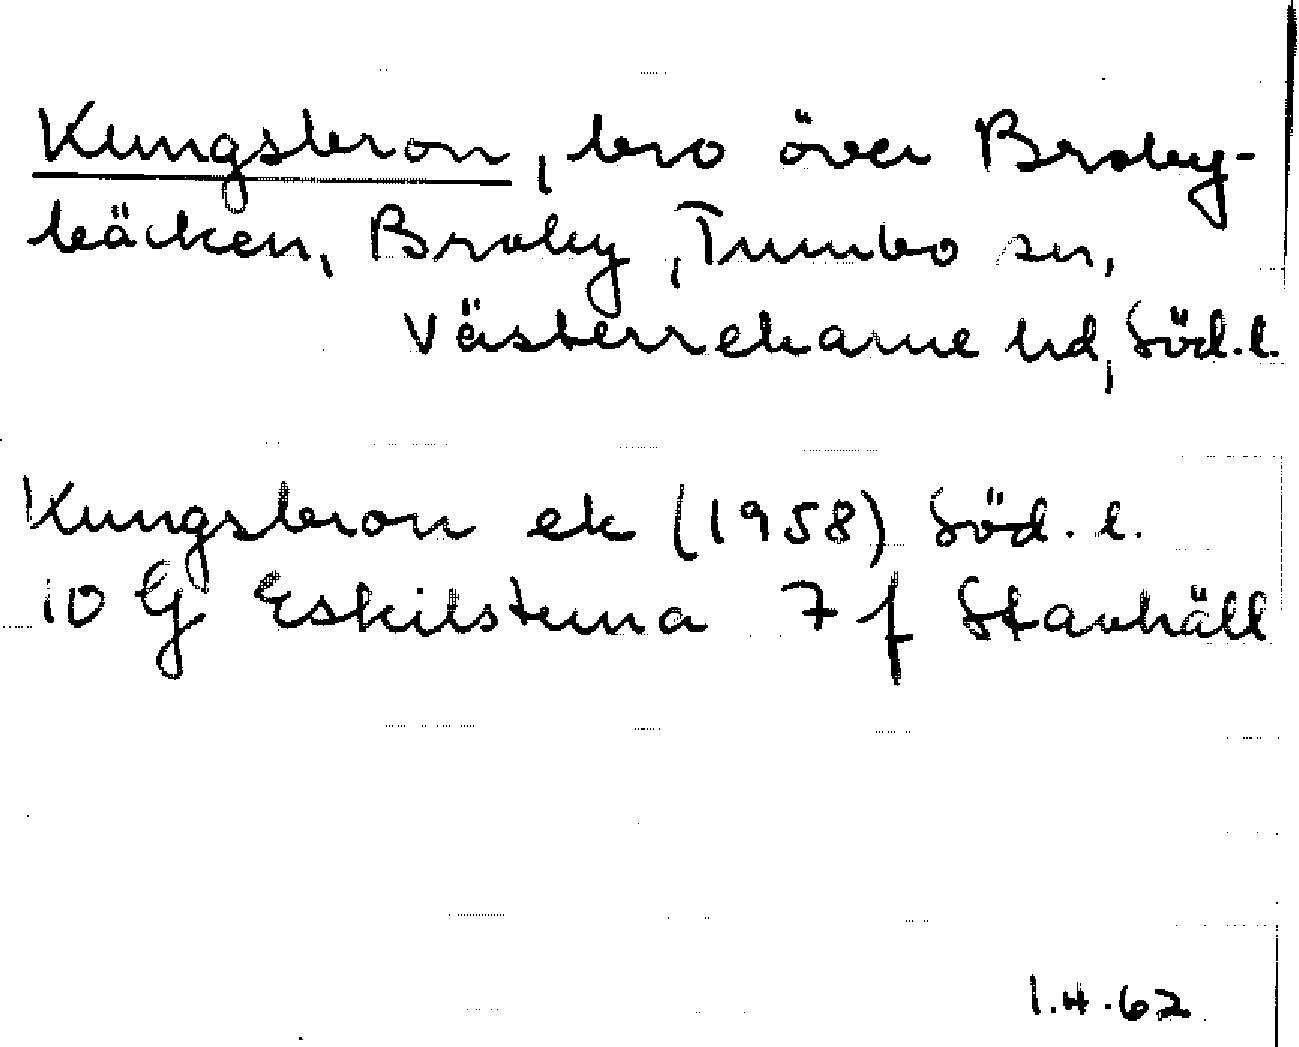 Kungsbron, bro över Broby-
bäcken, Broby, Tumbo sn,
Västerrekarne hd, Söd.l.
Kungsbron ek (1958) Söd. l.
10 G Eskilstuna 7 f Stavhäll
1.4.62